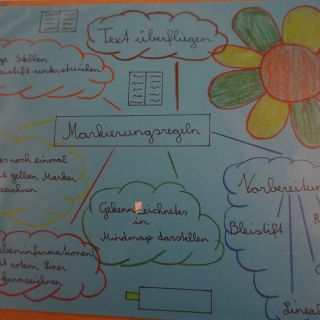 Text überfliegen
Stellen
unterstreichen
Markierungsregeln
noch einmal
gelben Marker
Gekennzeichnetes
in
Mindmap darstellen
Vorbereitun
Bleistift
R
rotem Liner
kennzeichnen
Lineal